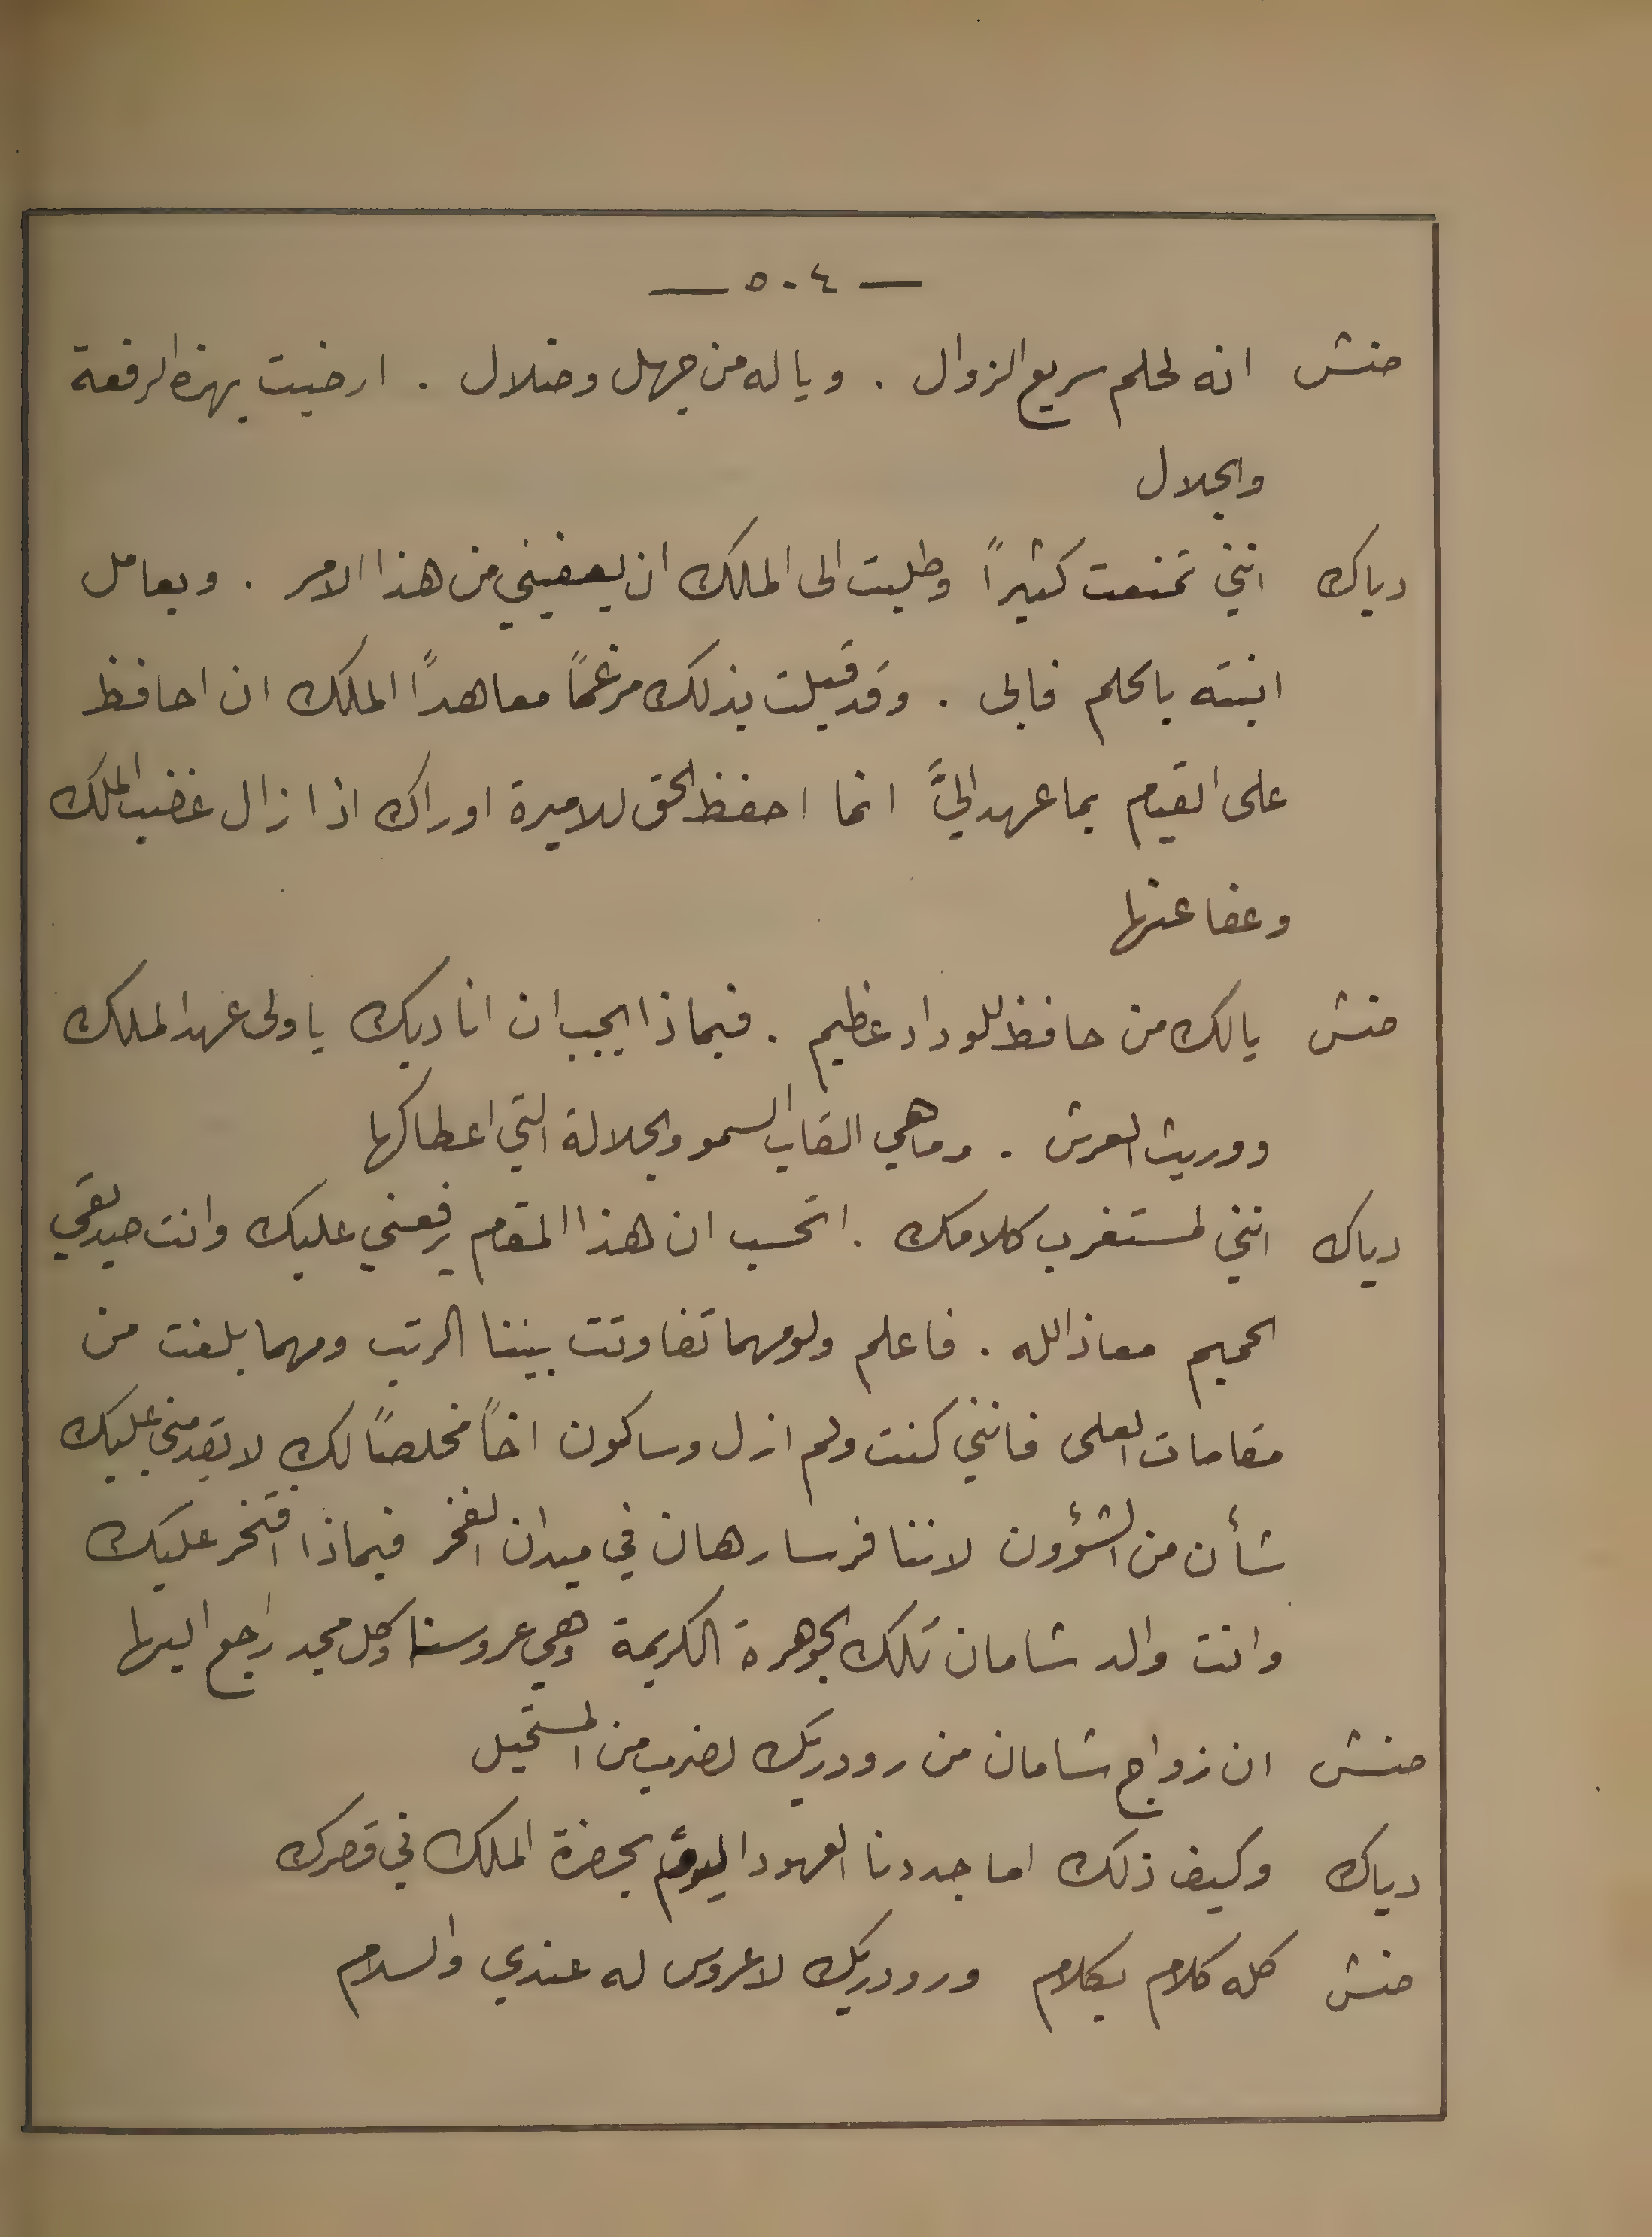 — ٥٠٤ —
منش انه لحلم سريع الزوال . ويا له من جهل وضلال . ارضيت بهذه الرفعة
والجلال
دياك انني تمنعت كثيراً وطلبت الى الملك ان يعفيني من هذا الامر . ويعامل
ابنته بالحلم فابى . وقد قبلت بذلك مرغماً معاهداً الملك ان احافظ
على القيام بما عهد اليَّ انما احفظ الحق للاميرة اوراك اذا زال غضب الملك
وعفا عنها
منش يالك من حافظ للوداد عظيم . فبماذا يجب ان اناديك يا ولى عهد الملك
ووريث العرش . وما هي القاب السمو والجلالة التي اعطاكها
دياك انني لمستغرب كلامك . اتحسب ان هذا المقام يرفعني عليك وانت صديقي
الحميم معاذ الله . فاعلم ولو مهما تفاوتت بيننا الرتب ومهما بلغت من
مقامات العلى فانني كنت ولم ازل وساكون اخاً مخلصاً لك لا يقدمني عليك
شأن من الشؤون لاننا فرسا رهان في ميدان الفخر فبماذا افتخر عليك
وانت والد شامان تلك الجوهرة الكريمة وهي عروسنا وكل مجد راجع اليها
منش ان زواج شامان من رودريك لضرب من المستحيل
دياك وكيف ذلك اما جددنا العهود اليوم بحضرة الملك في قصرك
منش كله كلام بكلام ورودريك لا عروس له عندي والسلام